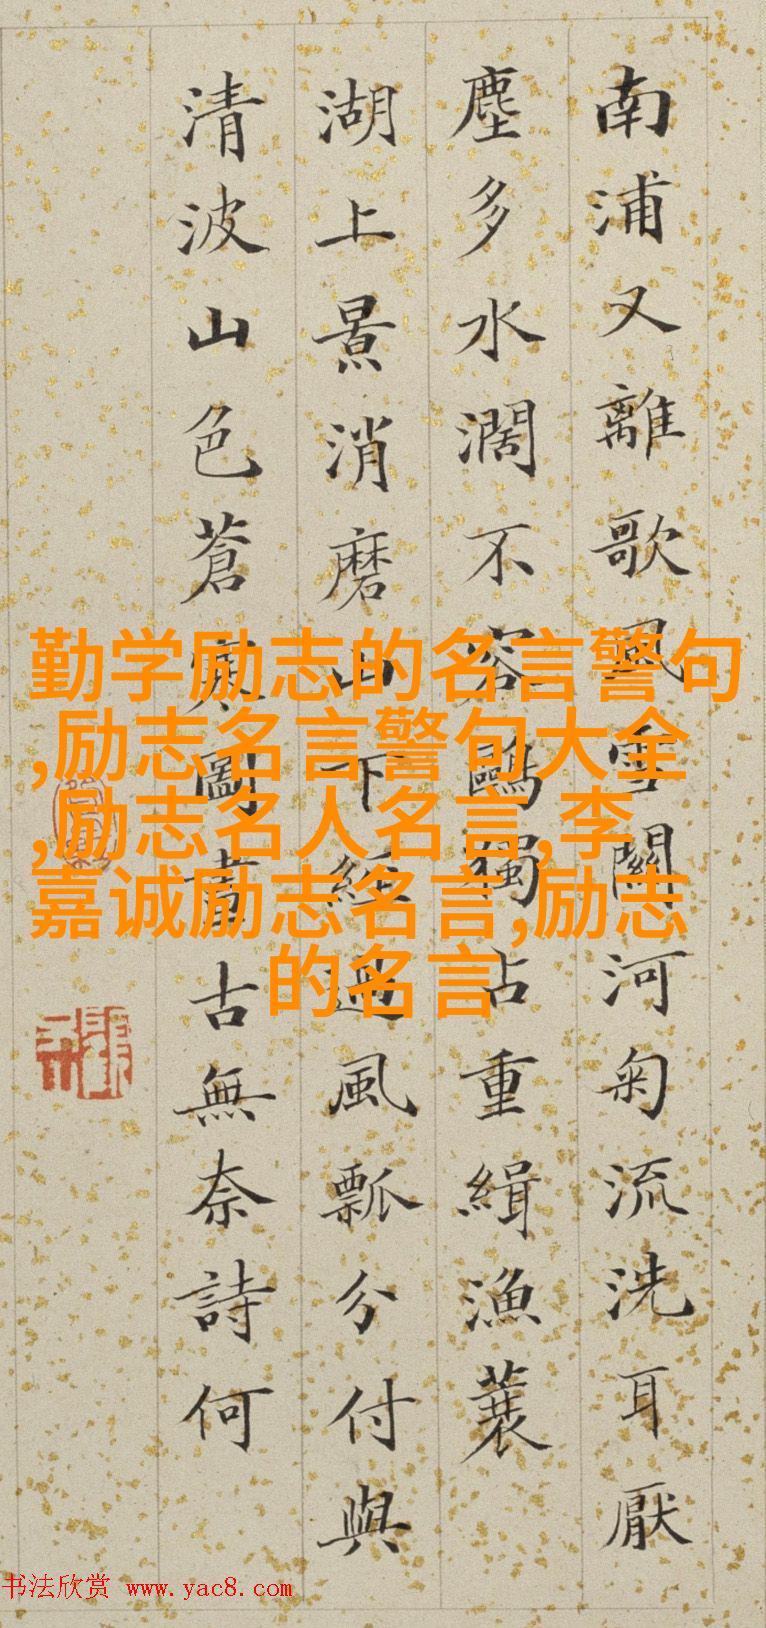 南浦又離歌風雪關河匊流洗耳厭
塵多水濶不容鷗獨占重緝漁蓑
湖上景消磨山下經過風瓢分付與
清波山色蒼寒圖畫古無奈詩何
勤学励志的名言警句
,励志名言警句大全
,励志名人名言,李
嘉诚励志名言,励志
的名言
书法欣赏 www.yac8.com